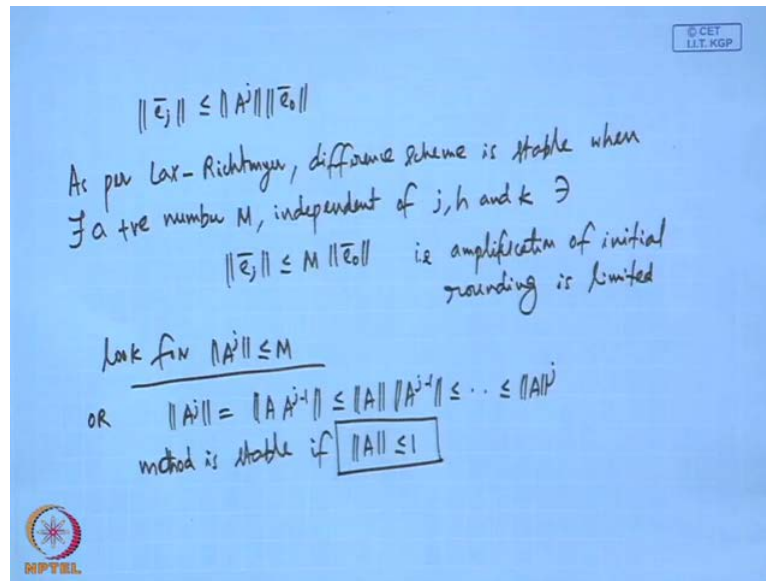 © CET
I.I.T. KGP
‖ē_j‖ ≤ ‖A^j‖ ‖ē_0‖
As per Lax-Richtmyer, difference scheme is stable when
∃ a +ve number M, independent of j, h and k ∋
‖ē_j‖ ≤ M ‖ē_0‖ ie amplification of initial
rounding is limited
Look for ‖A^j‖ ≤ M
OR ‖A^j‖ = ‖A A^{j-1}‖ ≤ ‖A‖ ‖A^{j-1}‖ ≤ ·· ≤ ‖A‖^j
method is stable if ‖A‖ ≤ 1
NPTEL